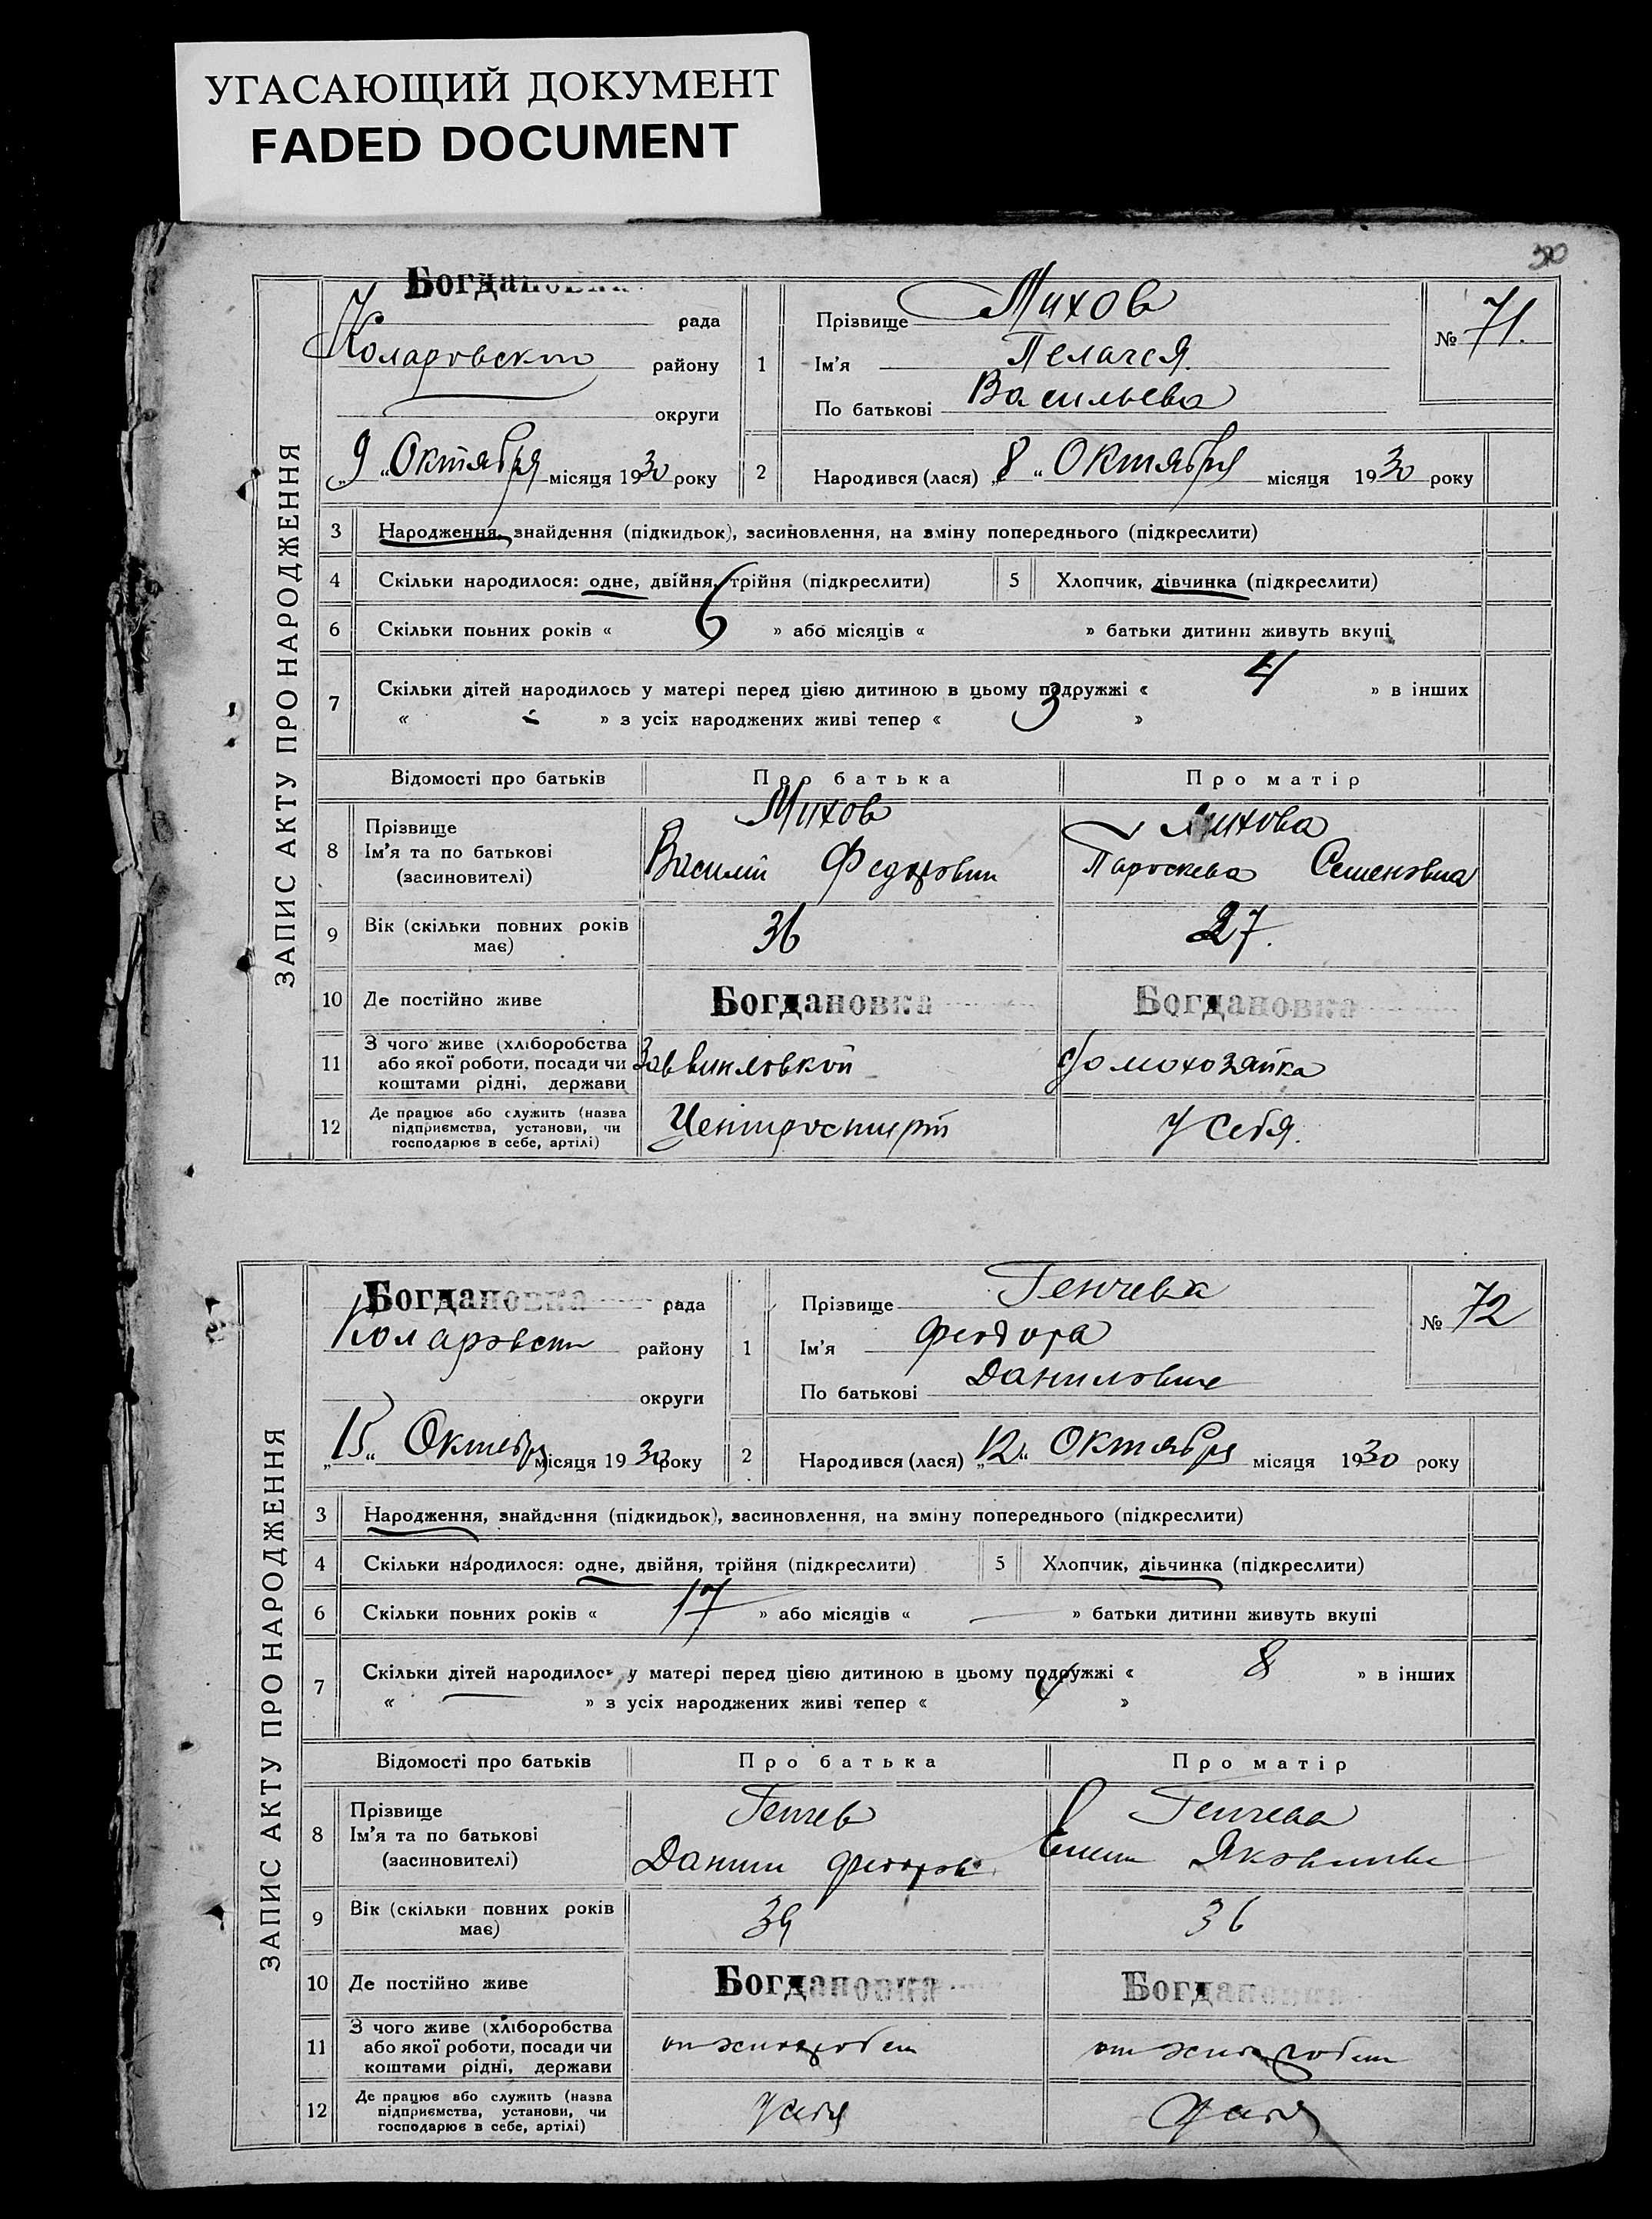 УГАСАЮЩИЙ ДОКУМЕНТ
FADED DOCUMENT
ЗАПИС АКТУ ПРО НАРОДЖЕННЯ
Богдановка
рада
Коларовский
району
округи
„9“ Октября місяця 1930 року
1
Прізвище Михов
Ім'я Пелагея
По батькові Васильева
№ 71.
2
Народився (лася) „8“ Октября місяця 1930 року
3 Народження, знайдення (підкидьок), засиновлення, на зміну попереднього (підкреслити)
4 Скільки народилося: одне, двійня, трійня (підкреслити) 5 Хлопчик, дівчинка (підкреслити)
6 Скільки повних років « 6 » або місяців « » батьки дитини живуть вкупі
7 Скільки дітей народилось у матері перед цією дитиною в цьому подружжі « 4 » в інших
« - » з усіх народжених живі тепер « 3 »
Відомості про батьків Про батька Про матір
8 Прізвище Михов Михова
Ім'я та по батькові Василий Федорович Пароскева Семеновна
(засиновителі)
9 Вік (скільки повних років має) 36 27.
10 Де постійно живе Богдановка Богдановка
11 З чого живе (хліборобства або якої роботи, посади чи коштами рідні, держави домохозяйка
12 Де працює або служить (назва підприємства, установи, чи господарює в себе, артілі) Центроспирт у себя.
ЗАПИС АКТУ ПРО НАРОДЖЕННЯ
Богдановка рада
Коларовски району
округи
„15“ Октября місяця 1930 року
1
Прізвище Генчева
Ім'я Феодора
По батькові Даниловна
№ 72
2
Народився (лася) „12“ Октября місяця 1930 року
3 Народження, знайдення (підкидьок), засиновлення, на зміну попереднього (підкреслити)
4 Скільки народилося: одне, двійня, трійня (підкреслити) 5 Хлопчик, дівчинка (підкреслити)
6 Скільки повних років « 17 » або місяців « — » батьки дитини живуть вкупі
7 Скільки дітей народилось у матері перед цією дитиною в цьому подружжі « 8 » в інших
« — » з усіх народжених живі тепер « »
Відомості про батьків Про батька Про матір
8 Прізвище Генчев Генчева
Ім'я та по батькові Данил Феодоров Елена Яковлевна
(засиновителі)
9 Вік (скільки повних років має) 39 36
10 Де постійно живе Богдановка Богдановка
11 З чого живе (хліборобства або якої роботи, посади чи коштами рідні, держави
12 Де працює або служить (назва підприємства, установи, чи господарює в себе, артілі) у себя у себя